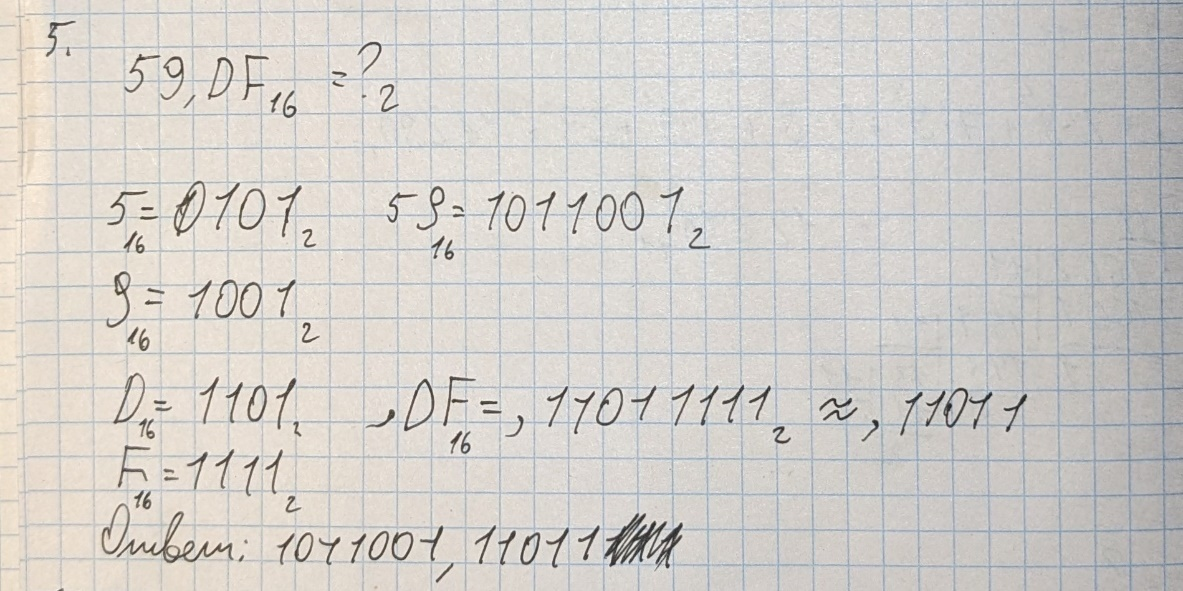 5.
59,DF₁₆ = ?₂
5₁₆ = 0101₂ 59₁₆ = 1011001₂
9₁₆ = 1001₂
D₁₆ = 1101₂ ,DF₁₆ = ,11011111₂ ≈ ,11011
F₁₆ = 1111₂
Ответ: 1011001,11011